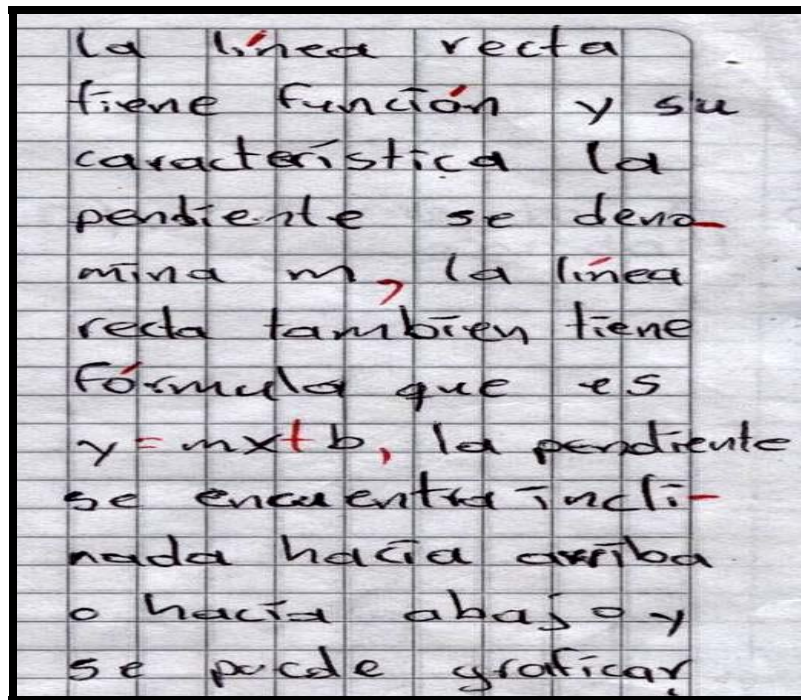 la línea recta
tiene función y su
característica la
pendiente se deno-
mina m, la línea
recta tambien tiene
fórmula que es
y=mx+b, la pendiente
se encuentra incli-
nada hacia arriba
o hacia abajo y
se puede graficar